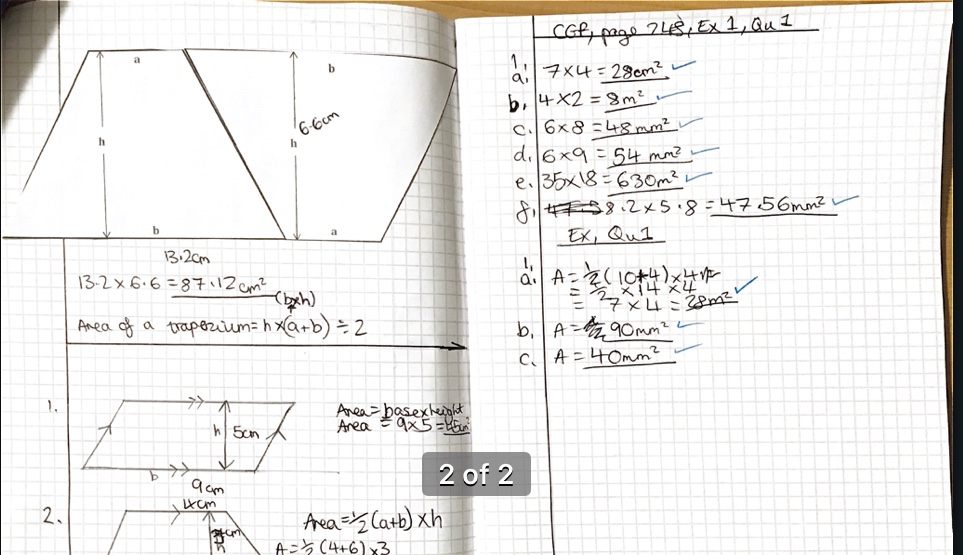 a
b
h
h
6.6cm
b
a
13.2cm
13.2 x 6.6 = 87.12cm²
(bxh)
Area of a trapezium = h x (a+b) ÷ 2
1.
h
5cm
b
9cm
Area = base x height
Area = 9 x 5 = 45cm²
2.
4cm
cm
h
Area = ½ (a+b) x h
A = ½ (4+6) x 3
CGP, page 248, Ex 1, Qu 1
1.
a. 7 x 4 = 28cm²
b. 4 x 2 = 8m²
c. 6 x 8 = 48mm²
d. 6 x 9 = 54 mm²
e. 35 x 18 = 630m²
f. 8.2 x 5.8 = 47.56mm²
Ex, Qu 1
1.
a. A = ½ (10+4) x 4
= ½ x 14 x 4
= 7 x 4 = 28m²
b. A = 90mm²
c. A = 40mm²
2 of 2